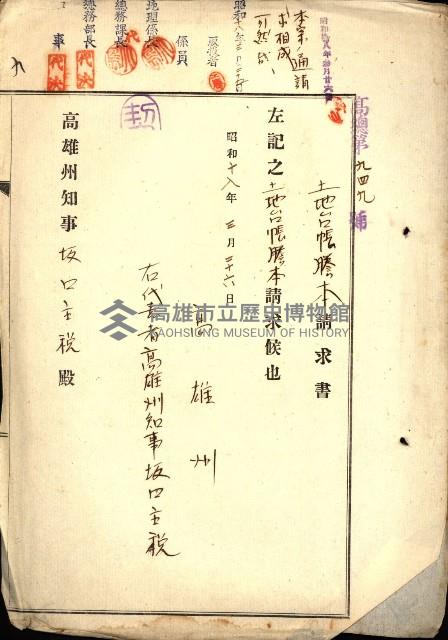 本案ノ通請
求相成
可然哉
昭和十八年
係員
地理係長
總務課長
總務部長
知事
代決
高總第九四九號
土地台帳謄本請求書
左記之土地台帳謄本請求候也
昭和十八年三月二十六日
高雄州
右代表者高雄州知事坂口主税
高雄州知事坂口主税殿
高雄市立歷史博物館
KAOHSIUNG MUSEUM OF HISTORY